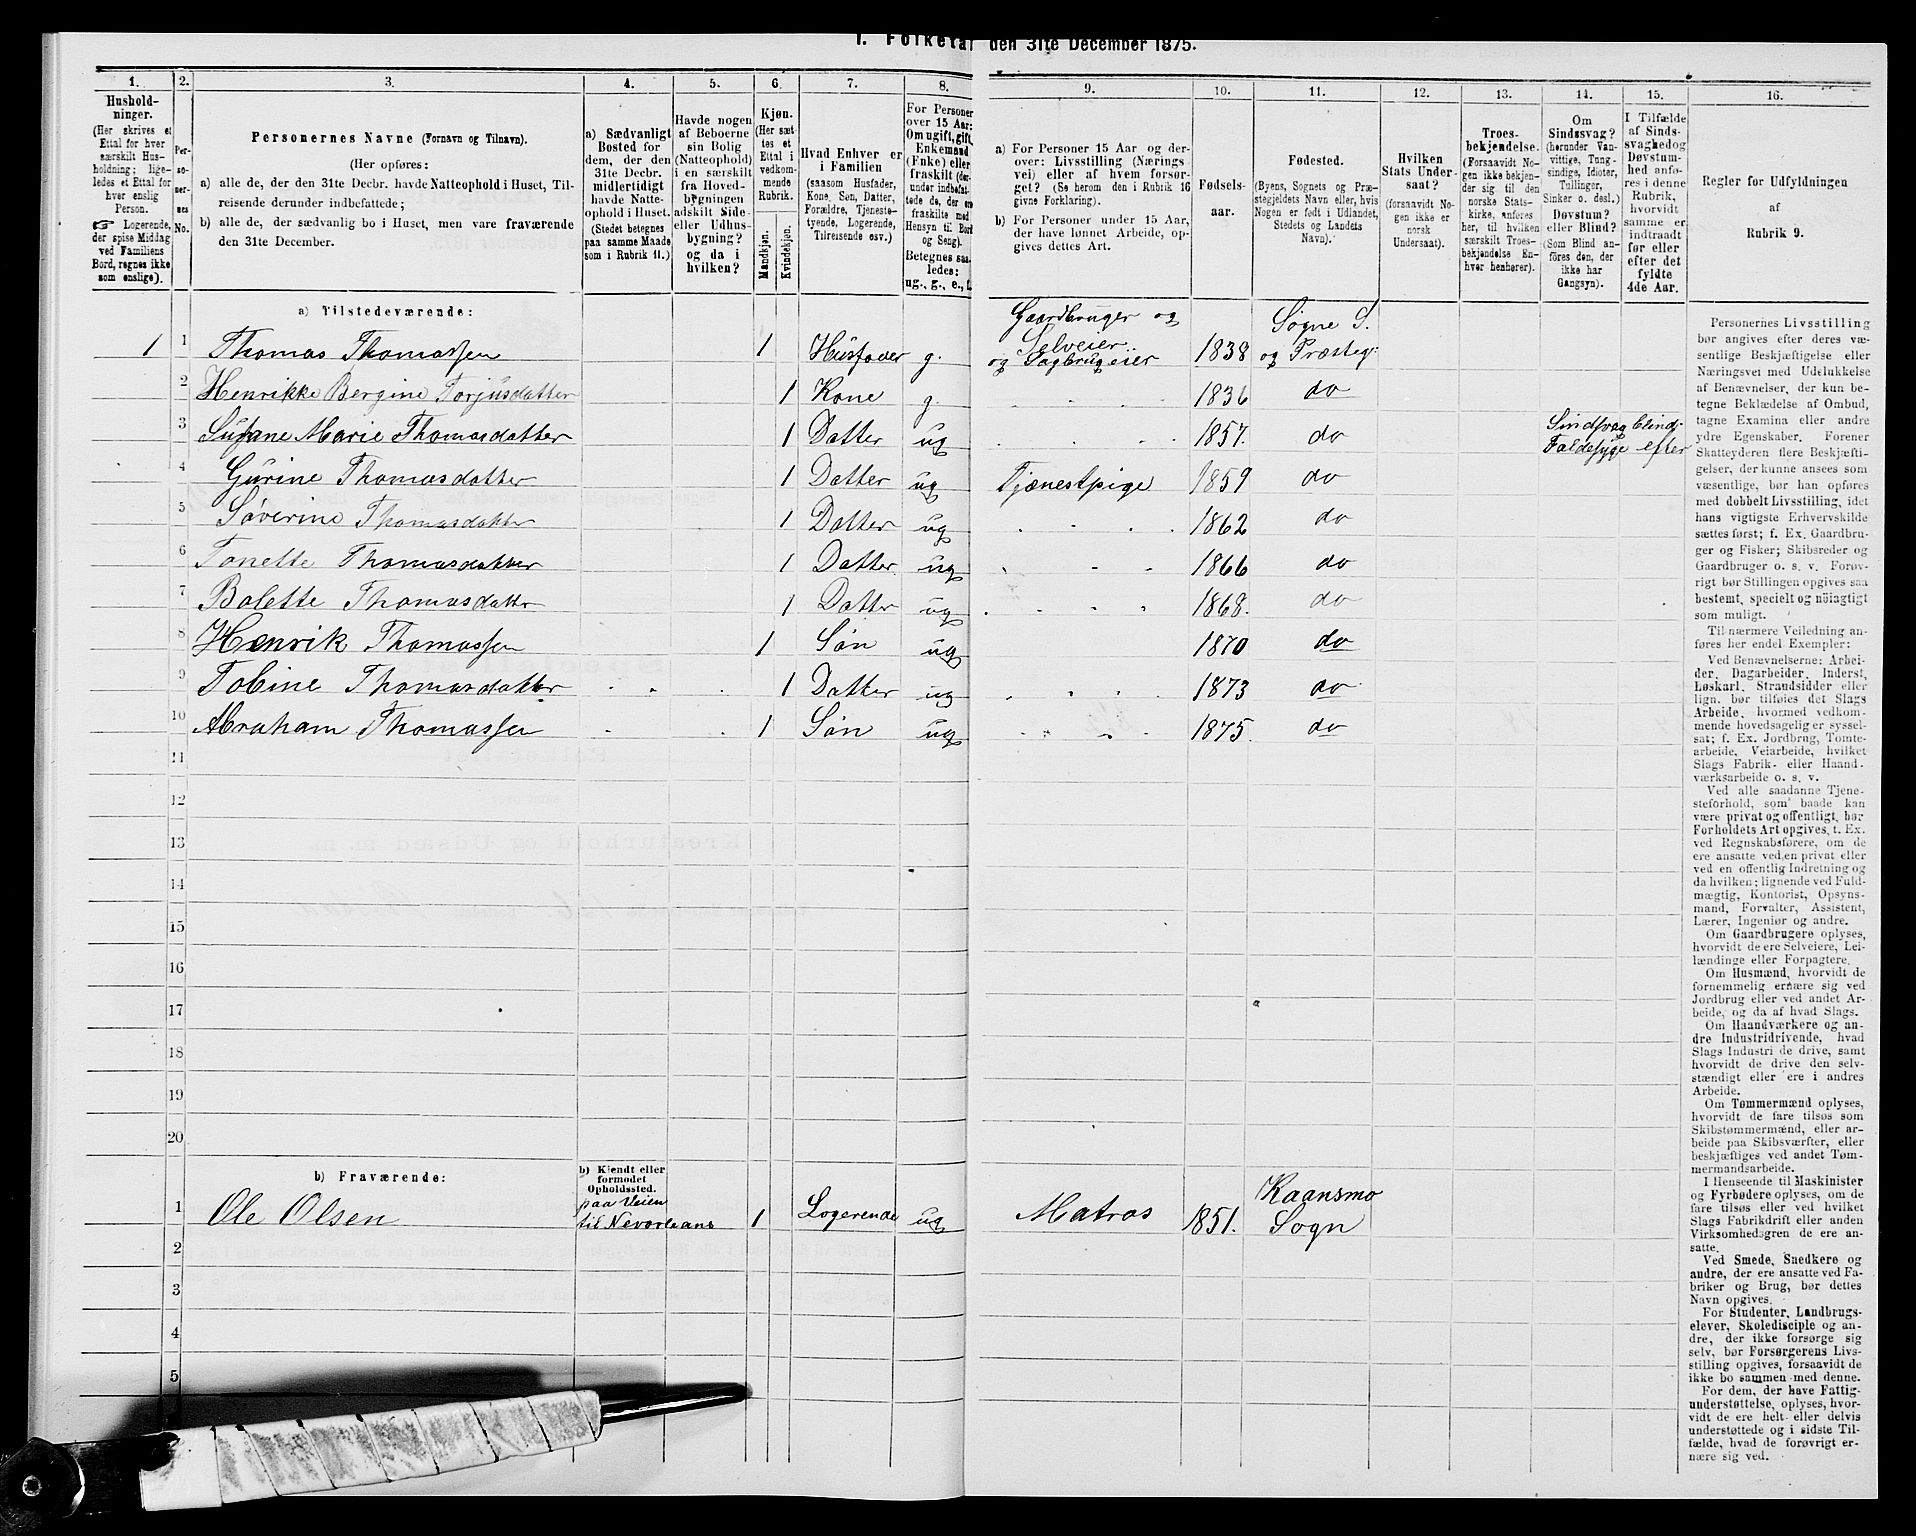 I. Folketal den 31te December 1875.
1. 2. 3. 4. 5. 6. 7. 8. 9. 10. 11. 12. 13. 14. 15. 16.
Hushold-
ninger.
(Her skrives et
Ettal for hver
særskilt Hus-
holdning; lige-
ledes et Ettal for
hver enslig
Person.
☞ Logerende,
der spise Middag
ved Familiens
Bord, regnes ikke
som enslige).
Per-
soner-
nes
No.
Personernes Navne (Fornavn og Tilnavn).
(Her opføres:
a) alle de, der den 31te Decbr. havde Natteophold i Huset, Til-
reisende derunder indbefattede;
b) alle de, der sædvanlig bo i Huset, men vare fraværende
den 31te December.
a) Sædvanligt
Bosted for
dem, der den
31te Decbr.
midlertidigt
havde Natte-
ophold i Huset.
(Stedet betegnes
paa samme Maade
som i Rubrik 11.)
Havde nogen
af Beboerne
sin Bolig
(Natteophold)
i en særskilt
fra Hoved-
bygningen
adskilt Side-
eller Udhus-
bygning?
og da i
hvilken?
Kjøn.
(Her sæt-
tes et
Ettal i
vedkom-
mende
Rubrik.
Mandkjøn.
Kvindekjøn.
Hvad Enhver er
i Familien
(saasom Husfader,
Kone, Søn, Datter,
Forældre, Tjeneste-
tyende, Logerende,
Tilreisende osv.)
For Personer
over 15 Aar:
Om ugift, gift,
Enkemand
(Enke) eller
fraskilt (der-
under indbefat-
tede de, der ere
fraskilte med
Hensyn til Bord
og Seng).
Betegnes saa-
ledes:
ug., g., e., f.
a) For Personer 15 Aar og der-
over: Livsstilling (Nærings
vei) eller af hvem forsør-
get? (Se herom den i Rubrik 16
givne Forklaring).
b) For Personer under 15 Aar,
der have lønnet Arbeide, op-
gives dettes Art.
Fødsels-
aar.
Fødested.
(Byens, Sognets og Præ-
stegjeldets Navn eller, hvis
Nogen er født i Udlandet,
Stedets og Landets
Navn).
Hvilken
Stats Under-
saat?
(forsaavidt No-
gen ikke er
norsk
Undersaat).
Troes-
bekjendelse.
(Forsaavidt No-
gen ikke bekjen-
der sig til den
norske Stats-
kirke, anføres
her, til hvilken
særskilt Troes-
bekjendelse En-
hver henhører).
Om
Sindssvag?
(herunder Van-
vittige, Tung-
sindige, Idioter,
Tullinger,
Sinker o. desl.)
Døvstum?
eller Blind?
(Som Blind an-
føres den, der
ikke har
Gangsyn).
I Tilfælde
af Sinds-
svaghed og
Døvstum-
hed anfø-
res i denne
Rubrik,
hvorvidt
samme er
indtraadt
før eller
efter det
fyldte
4de Aar.
Regler for Udfyldningen
af
Rubrik 9.
a) Tilstedeværende:
1 1 Thomas Thomassen 1 Husfader g. Gaardbruger og Selveier og Sagbrugeier 1838 Sogne S. og Præsteg:
2 Henrikke Bergine Torjusdatter 1 Kone g. 1836 do
3 Susane Marie Thomasdatter 1 Datter ug 1857. do Sindsvag blind; Faldesyge efter
4 Gurine Thomasdatter 1 Datter ug Tjenestpige 1859 do
5 Søverine Thomasdatter 1 Datter ug 1862 do
6 Tonette Thomasdatter 1 Datter ug 1866 do
7 Bolette Thomasdatter 1 Datter ug 1868. do
8 Henrik Thomassen 1 Søn ug 1870 do
9 Tobine Thomasdatter 1 Datter ug 1873 do
10 Abraham Thomassen 1 Søn ug 1875. do
11
12
13
14
15
16
17
18
19
20
b) Fraværende:
b) Kjendt eller
formodet
Opholdssted.
1 Ole Olsen paa Veien til Nevorleans 1 Logerende ug Matros 1851. Kaansmo Sogn
2
3
4
5
Personernes Livsstilling
bør angives efter deres væ-
sentlige Beskjæftigelse eller
Næringsvei med Udelukkelse
af Benævnelser, der kun be-
tegne Beklædelse af Ombud,
tagne Examina eller andre
ydre Egenskaber. Forener
Skatteyderen flere Beskjæfti-
gelser, der kunne ansees som
væsentlige, bør han opføres
med dobbelt Livsstilling, idet
hans vigtigste Erhvervskilde
sættes først; f. Ex. Gaardbru-
ger og Fisker; Skibsreder og
Gaardbruger o. s. v. Forøv-
rigt bør Stillingen opgives saa
bestemt, specielt og nøiagtigt
som muligt.
Til nærmere Veiledning an-
føres her endel Exempler:
Ved Benævnelserne: Arbei-
der, Dagarbeider, Inderst,
Løskarl, Strandsidder eller
lign. bør tilføies det Slags
Arbeide, hvormed vedkom-
mende hovedsagelig er syssel-
sat; f. Ex. Jordbrug, Tomte-
arbeide, Veiarbeide, hvilket
Slags Fabrik- eller Haand-
værksarbeide o. s. v.
Ved alle saadanne Tjene-
steforhold, som baade kan
være privat og offentligt, bør
Forholdets Art opgives, t. Ex.
ved Regnskabsførere, om de
ere ansatte ved en privat eller
ved en offentlig Indretning og
da hvilken; lignende ved Fuld-
mægtig, Kontorist, Opsyns-
mand, Forvalter, Assistent,
Lærer, Ingeniør og andre.
Om Gaardbrugere oplyses,
hvorvidt de ere Selveiere, Lei-
lændinge eller Forpagtere.
Om Husmænd, hvorvidt de
fornemmelig ernære sig ved
Jordbrug eller ved andet Ar-
beide, og da af hvad Slags.
Om Haandværkere og an-
dre Industridrivende, hvad
Slags Industri de drive, samt
hvorvidt de drive den selv-
stændigt eller ere i andres
Arbeide.
Om Tømmermænd oplyses,
hvorvidt de fare tilsøs som
Skibstømmermænd, eller ar-
beide paa Skibsværfter, eller
beskjæftiges ved andet Tøm-
mermandsarbeide.
I Henseende til Maskinister
og Fyrbødere oplyses, om de
fare tilsøs eller ved hvilket
Slags Fabrikdrift eller anden
Virksomhedsgren de ere an-
satte.
Ved Smede, Snedkere og
andre, der ere ansatte ved Fa-
briker og Brug, bør dettes
Navn opgives.
For Studenter, Landbrugs-
elever, Skoledisciple og an-
dre, der ikke forsørge sig
selv, bør Forsørgerens Livs-
stilling opgives, forsaavidt de
ikke bo sammen med denne.
For dem, der have Fattig-
understøttelse, oplyses, hvor-
vidt de ere helt eller delvis
understøttede og i sidste Til-
fælde, hvad de forøvrigt er-
nære sig ved.